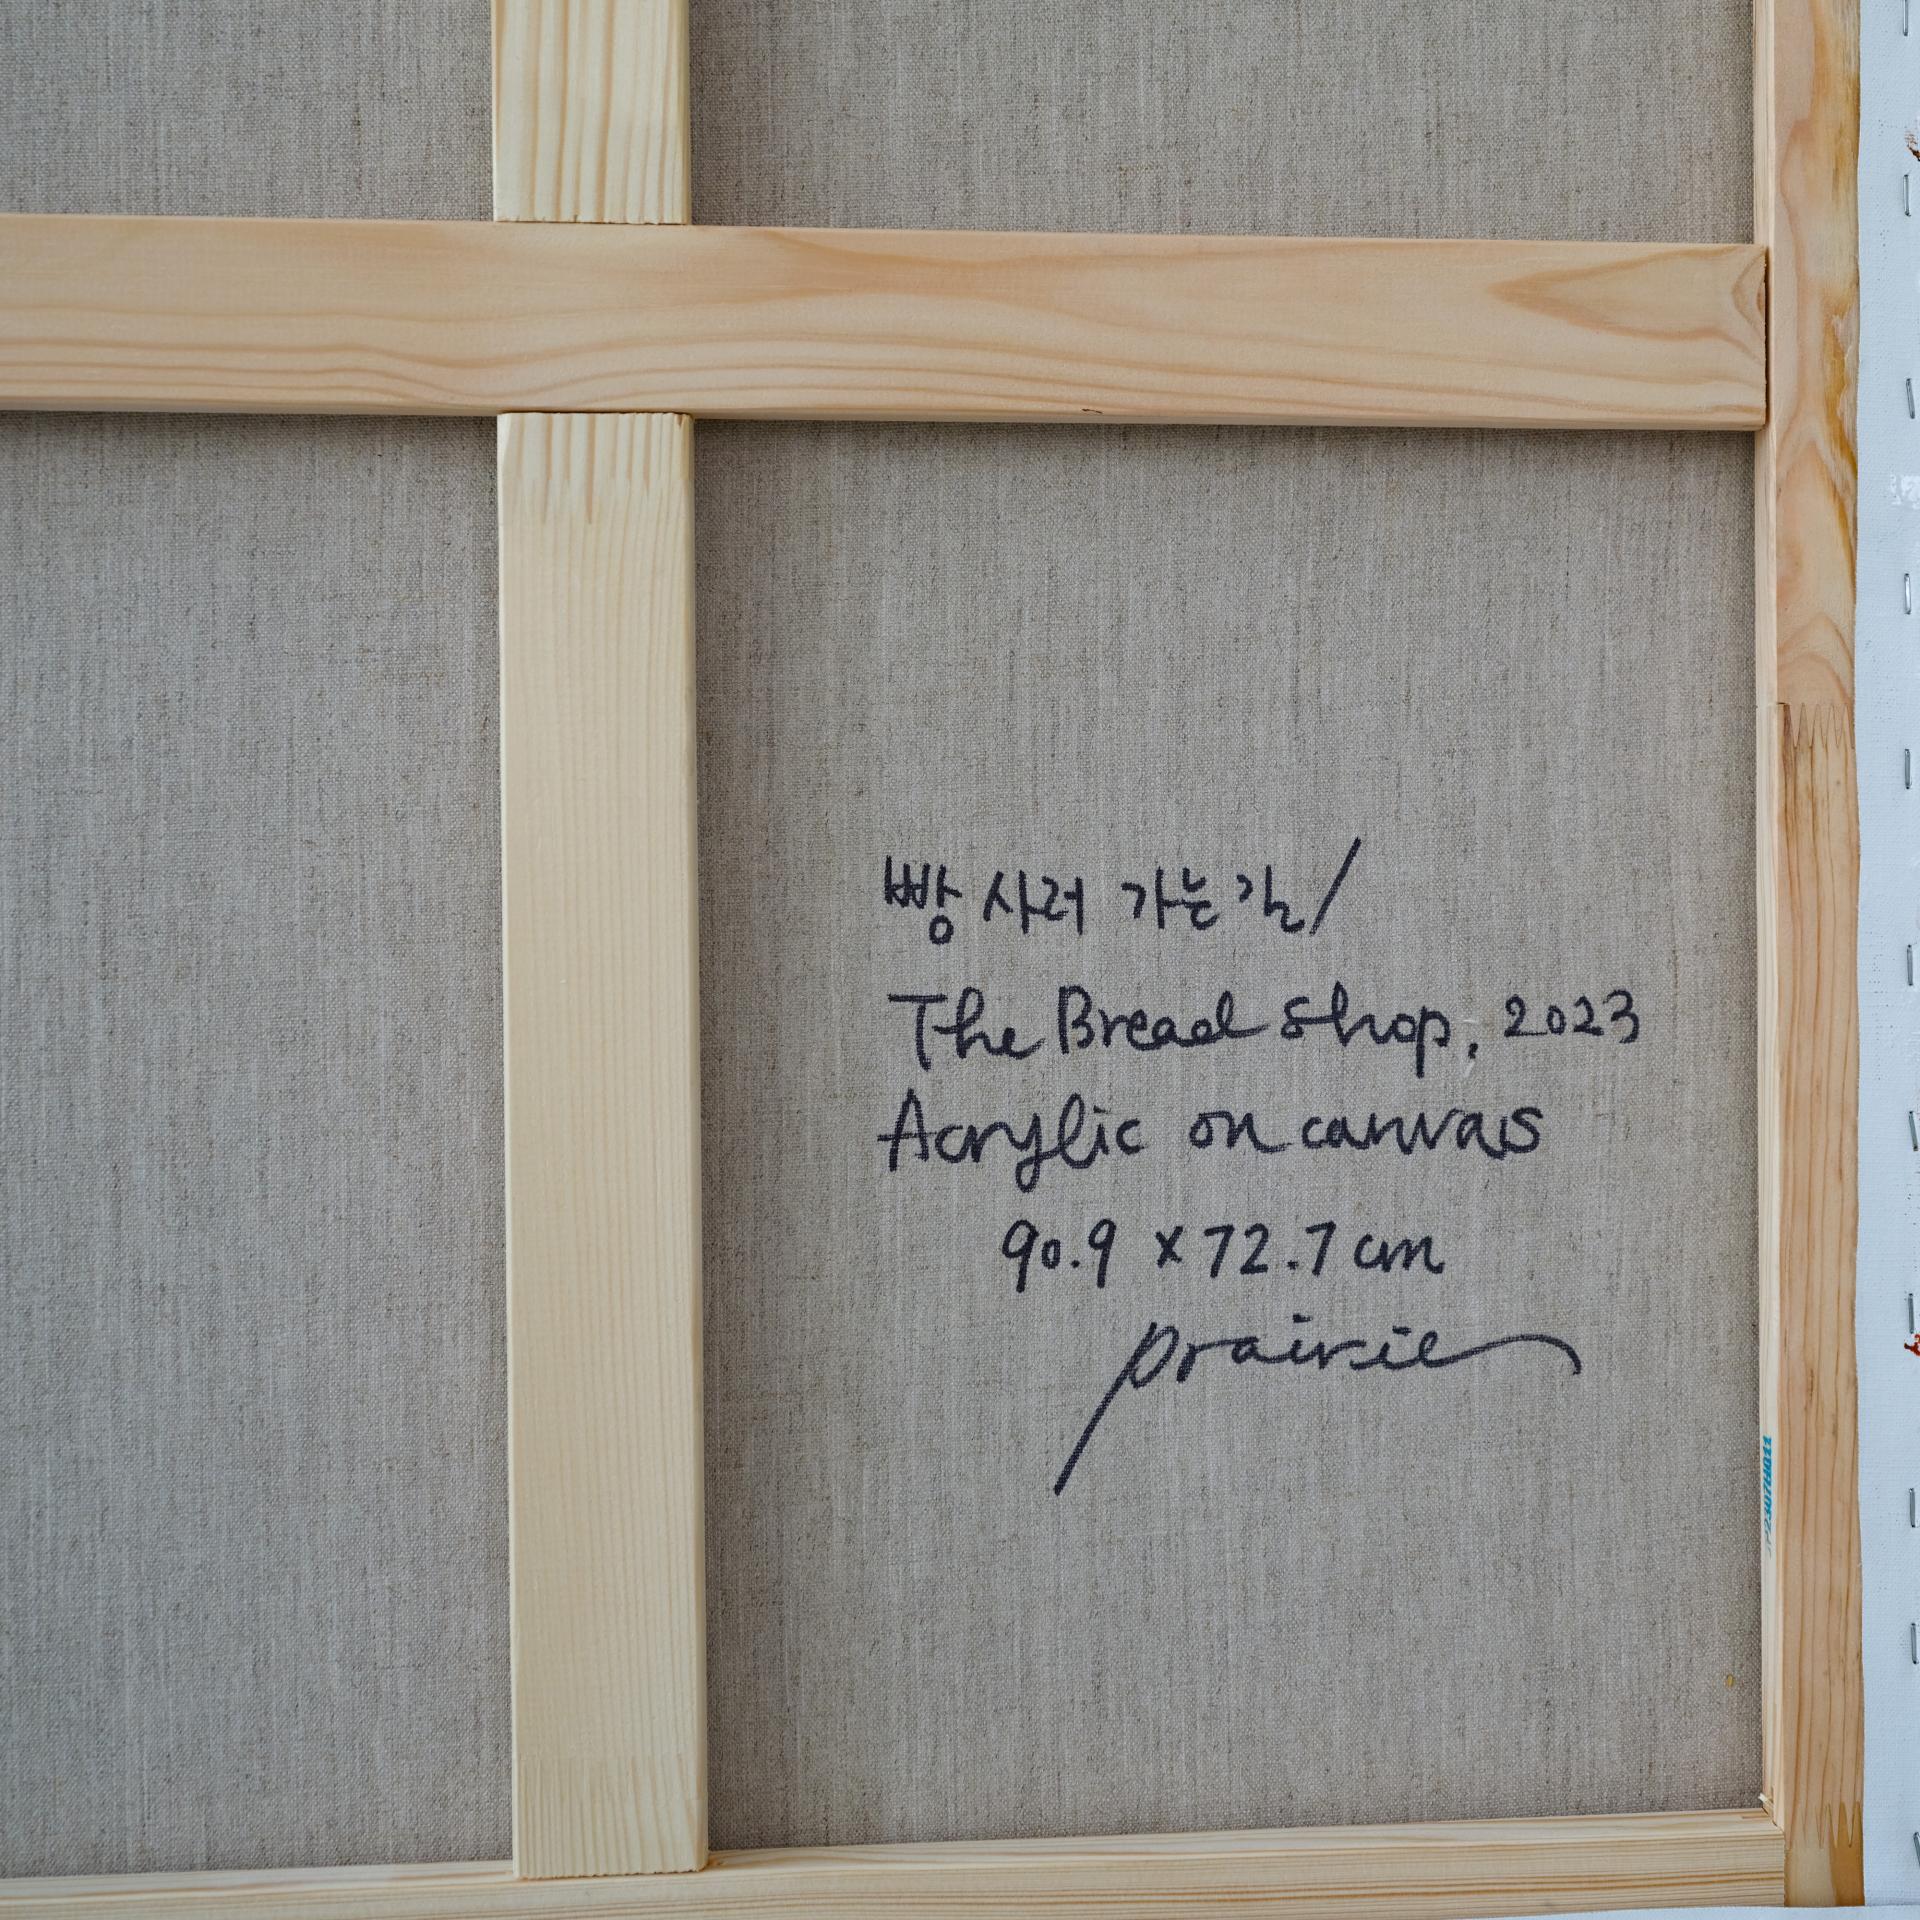 빵 사러 가는 길/
The Bread Shop, 2023
Acrylic on canvas
90.9 x 72.7 cm
prairie